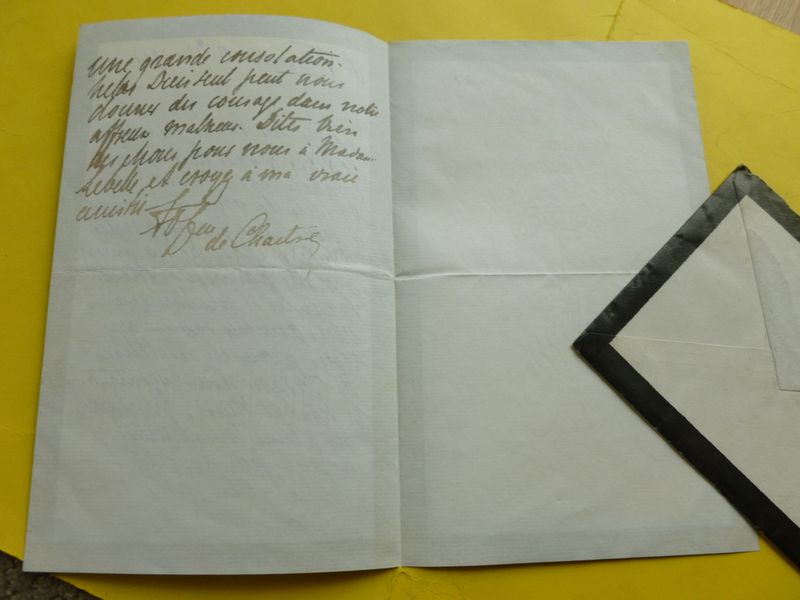 une grande consolation.
helas Dieu seul peut nous
donner du courage dans notre
affreux malheur. Dites bien
des choses pour nous à Madame
Lebelle et croyez à ma vraie
amitié
de Chartres